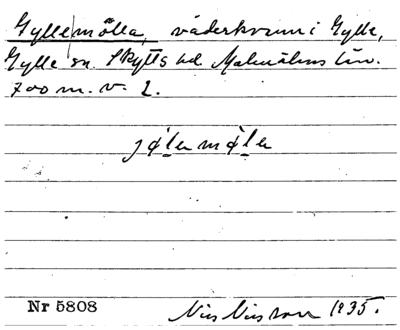 Gylle|mölla, väderkvarn i Gylle,
Gylle sn. Skytts hd Malmöhus län.
700 m. v. 2.
jø̀lamø̀la
Nr 5808 Nils Nilsson 1935.